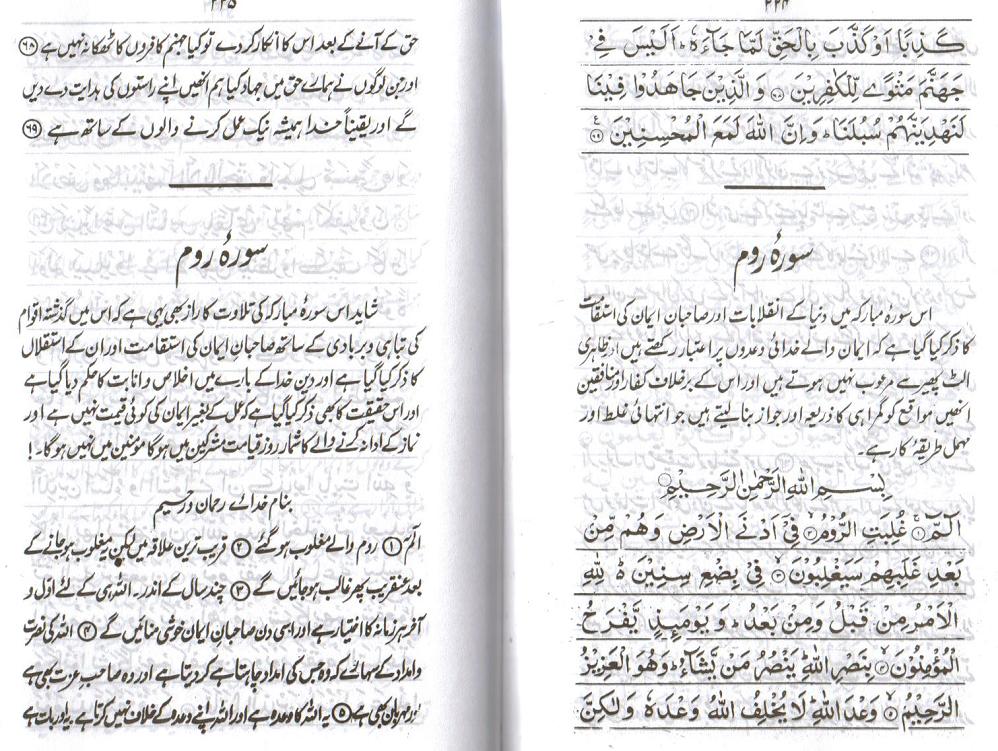 ۲۲۴
كَذِبًا اَوْ كَذَّبَ بِالْحَقِّ لَمَّا جَآءَهٗ ؕ اَلَيْسَ فِيْ
جَهَنَّمَ مَثْوًى لِّلْكٰفِرِيْنَ ﴿۶۸﴾ وَالَّذِيْنَ جَاهَدُوْا فِيْنَا
لَنَهْدِيَنَّهُمْ سُبُلَنَا ؕ وَاِنَّ اللّٰهَ لَمَعَ الْمُحْسِنِيْنَ ﴿۶۹﴾
سورۂ روم
اس سورۂ مبارکہ میں دنیا کے انقلابات اور صاحبان ایمان کی استقامت
کا ذکر کیا گیا ہے کہ ایمان والے خدائی وعدوں پر اعتبار رکھتے ہیں اور ظاہری
الٹ پھیر سے مرعوب نہیں ہوتے ہیں اور اس کے برخلاف کفار اور منافقین
انھیں مواقع کو گمراہی کا ذریعہ اور جواز بنا لیتے ہیں جو انتہائی غلط اور
مہمل طریقۂ کار ہے۔
بِسْمِ اللّٰهِ الرَّحْمٰنِ الرَّحِيْمِ
الٓمّٓ ﴿۱﴾ غُلِبَتِ الرُّوْمُ ﴿۲﴾ فِيْٓ اَدْنَى الْاَرْضِ وَهُمْ مِّنْۢ
بَعْدِ غَلَبِهِمْ سَيَغْلِبُوْنَ ﴿۳﴾ فِيْ بِضْعِ سِنِيْنَ ؕ لِلّٰهِ
الْاَمْرُ مِنْ قَبْلُ وَمِنْۢ بَعْدُ ؕ وَيَوْمَئِذٍ يَّفْرَحُ
الْمُؤْمِنُوْنَ ﴿۴﴾ بِنَصْرِ اللّٰهِ ؕ يَنْصُرُ مَنْ يَّشَآءُ ؕ وَهُوَ الْعَزِيْزُ
الرَّحِيْمُ ﴿۵﴾ وَعْدَ اللّٰهِ ؕ لَا يُخْلِفُ اللّٰهُ وَعْدَهٗ وَلٰكِنَّ
۲۲۵
حق کے آنے کے بعد اس کا انکار کردے تو کیا جہنم کافروں کا ٹھکانہ نہیں ہے ﴿۶۸﴾
اور جن لوگوں نے ہمارے حق میں جہاد کیا ہم انھیں اپنے راستوں کی ہدایت دے دیں
گے اور یقیناً خدا ہمیشہ نیک عمل کرنے والوں کے ساتھ ہے ﴿۶۹﴾
سورۂ روم
شاید اس سورۂ مبارکہ کی تلاوت کا راز بھی یہی ہے کہ اس میں گذشتہ اقوام
کی تباہی و بربادی کے ساتھ صاحبان ایمان کی استقامت اور ان کے استقلال
کا ذکر کیا گیا ہے اور دین خدا کے بارے میں اخلاص و انابت کا حکم دیا گیا ہے
اور اس حقیقت کا بھی ذکر کیا گیا ہے کہ عمل کے بغیر ایمان کی کوئی قیمت نہیں ہے اور
نماز کے ادا نہ کرنے والے کا شمار روز قیامت مشرکین میں ہوگا مومنین میں نہیں ہوگا۔!
بنام خدائے رحمان و رحیم
الٓمٓ ﴿۱﴾ روم والے مغلوب ہو گئے ﴿۲﴾ قریب ترین علاقہ میں لیکن یہ مغلوب ہو جانے کے
بعد عنقریب پھر غالب ہو جائیں گے ﴿۳﴾ چند سال کے اندر۔ اللہ ہی کے لئے اول و
آخر ہر زمانہ کا اختیار ہے اور اسی دن صاحبان ایمان خوشی منائیں گے ﴿۴﴾ اللہ کی نصرت
و امداد کے سہارے کہ وہ جس کی امداد چاہتا ہے کر دیتا ہے اور وہ صاحب عزت بھی ہے
اور مہربان بھی ہے ﴿۵﴾ یہ اللہ کا وعدہ ہے اور اللہ اپنے وعدہ کے خلاف نہیں کرتا ہے۔ یہ اور بات ہے